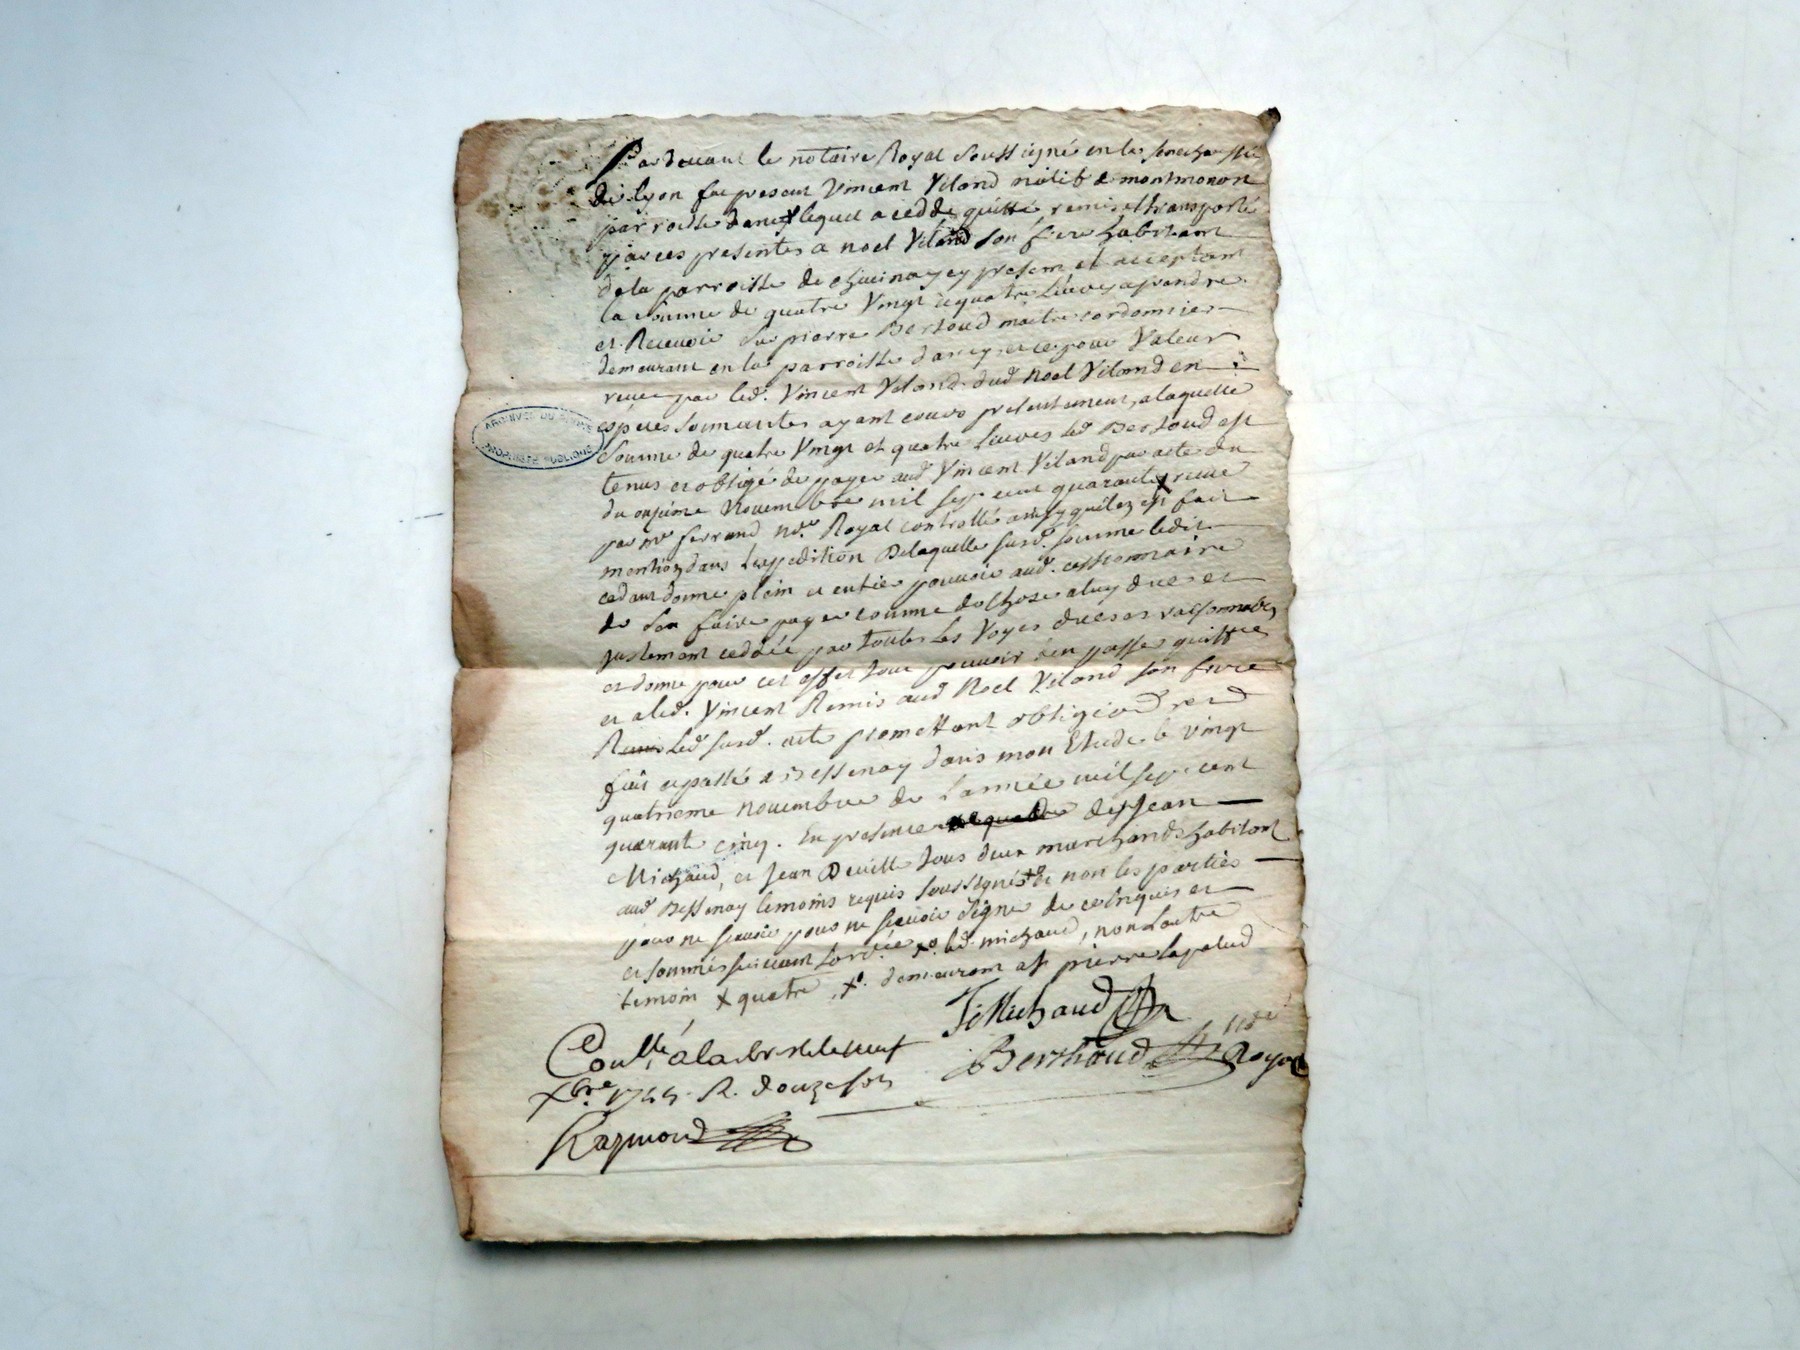 Pardevant le notaire Royal soussigné en la senechaussée
de lyon fut present Vincent Véland natif de montmonon
parroisse lequel a ceddé quitté remis et transporté
par ces presentes a noel Véland son frere habitant
de la parroisse de present et acceptant
la somme de quatre Vingt et quatre Livres a prendre
et Recevoir sur pierre Bertoud maitre cordonnier
demeurant en la parroisse d'ancy et ce pour Valeur
reçue par led. Vincent Véland dud. Noel Véland en
espèces sonnantes ayant cours presentement, a laquelle
somme de quatre Vingt et quatre Livres led. Bertoud est
tenus et obligé de payer aud. Vincent Véland par acte du
du onzieme Novembre mil sept cent quarante reçue
par me ferrand nore Royal controllé ainsy qu'il en est fait
mention dans L'expedition De laquelle susd. somme ledit
cedant donne plein et entier pouvoir aud. cessionnaire
de s'en faire payer comme de chose a luy due et
justement ceddée par toutes Les Voyes dues et raisonnables
et donne pour cet effet tout pouvoir d'en passer quittce
et a led. Vincent Remis aud. Noel Véland son frere
Remis led. susd. acte promettant obligeant
fait et passé a Bessenay dans mon Etude le vingt
quatrieme novembre de L'année mil sept cent
quarante cinq. En presence de sr Jean
Michaud, et Jean Deville tous deux marchands habitant
aud. Bessenay temoins requis soussignés et non les parties
pour ne sçavoir pour ne sçavoir signer de ce enquises et
et sommés suivant L'ordce led. michaud, non L'autre
temoin x quatre x. demeurant et pierre Lapalud
J. Michaud
Berthaud nore Royal
Conllé a la bresle le neuf
Xbre 1745. R. douze sols
Raymond
ARCHIVES DU RHONE
PROPRIETE PUBLIQUE